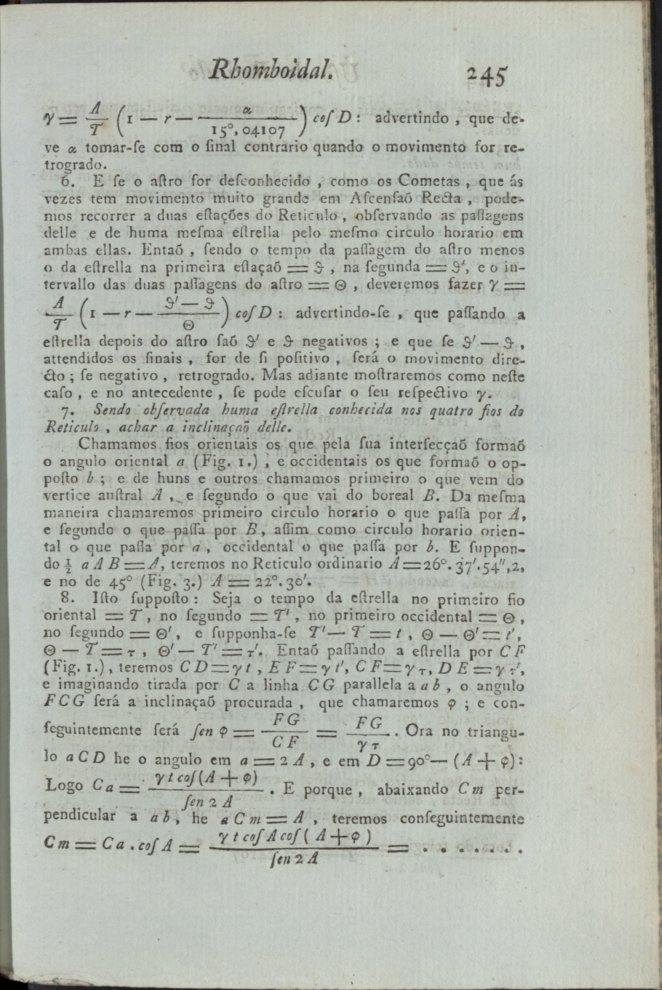 Rhomboidal. 245
γ = A/T (1 — r — α/15°,04107) coſ D : advertindo , que de-
ve α tomar-ſe com o ſinal contrario quando o movimento for re-
trogrado.
6. E ſe o aſtro for deſconhecido , como os Cometas , que ás
vezes tem movimento muito grande em Aſcenſaõ Recta , pode-
mos recorrer a duas eſtações do Reticulo , obſervando as paſſagens
delle e de huma meſma eſtrella pelo meſmo circulo horario em
ambas ellas. Entaõ , ſendo o tempo da paſſagem do aſtro menos
o da eſtrella na primeira eſtaçaõ = ϑ , na ſegunda = ϑ′, e o in-
tervallo das duas paſſagens do aſtro = Θ , deveremos fazer γ =
A/T (1 — r — (ϑ′ — ϑ)/Θ) coſ D : advertindo-ſe , que paſſando a
eſtrella depois do aſtro ſaõ ϑ′ e ϑ negativos ; e que ſe ϑ′ — ϑ ,
attendidos os ſinais , for de ſi poſitivo , ſerá o movimento dire-
cto ; ſe negativo , retrogrado. Mas adiante moſtraremos como neſte
caſo , e no antecedente , ſe pode eſcuſar o ſeu reſpectivo γ.
7. Sendo obſervada huma eſtrella conhecida nos quatro fios do
Reticulo , achar a inclinaçaõ delle.
Chamamos fios orientais os que pela ſua interſecçaõ formaõ
o angulo oriental a (Fig. 1.) , e occidentais os que formaõ o op-
poſto b ; e de huns e outros chamamos primeiro o que vem do
vertice auſtral A , e ſegundo o que vai do boreal B. Da meſma
maneira chamaremos primeiro circulo horario o que paſſa por A,
e ſegundo o que paſſa por B, aſſim como circulo horario orien-
tal o que paſſa por a , occidental o que paſſa por b. E ſuppon-
do ½ a A B = A, teremos no Reticulo ordinario A = 26°. 37′. 54″,2,
e no de 45° (Fig. 3.) A = 22°. 30′.
8. Iſto ſuppoſto : Seja o tempo da eſtrella no primeiro fio
oriental = T , no ſegundo = T′ , no primeiro occidental = Θ ,
no ſegundo = Θ′ , e ſupponha-ſe T′ — T = t , Θ — Θ′ = t′,
Θ — T = τ , Θ′ — T′ = τ′. Entaõ paſſando a eſtrella por C F
(Fig. 1.) , teremos C D = γ t , E F = γ t′, C F = γ τ, D E = γ τ′,
e imaginando tirada por C a linha C G parallela a a b , o angulo
F C G ſerá a inclinaçaõ procurada , que chamaremos φ ; e con-
ſeguintemente ſerá ſen φ = F G/C F = F G/γ τ . Ora no triangu-
lo a C D he o angulo em a = 2 A , e em D = 90° — (A + φ) :
Logo C a = γ t coſ (A + φ)/ſen 2 A . E porque , abaixando C m per-
pendicular a a b , he a C m = A , teremos conſeguintemente
C m = C a . coſ A = γ t coſ A coſ ( A + φ )/ſen 2 A = . . . . . . .